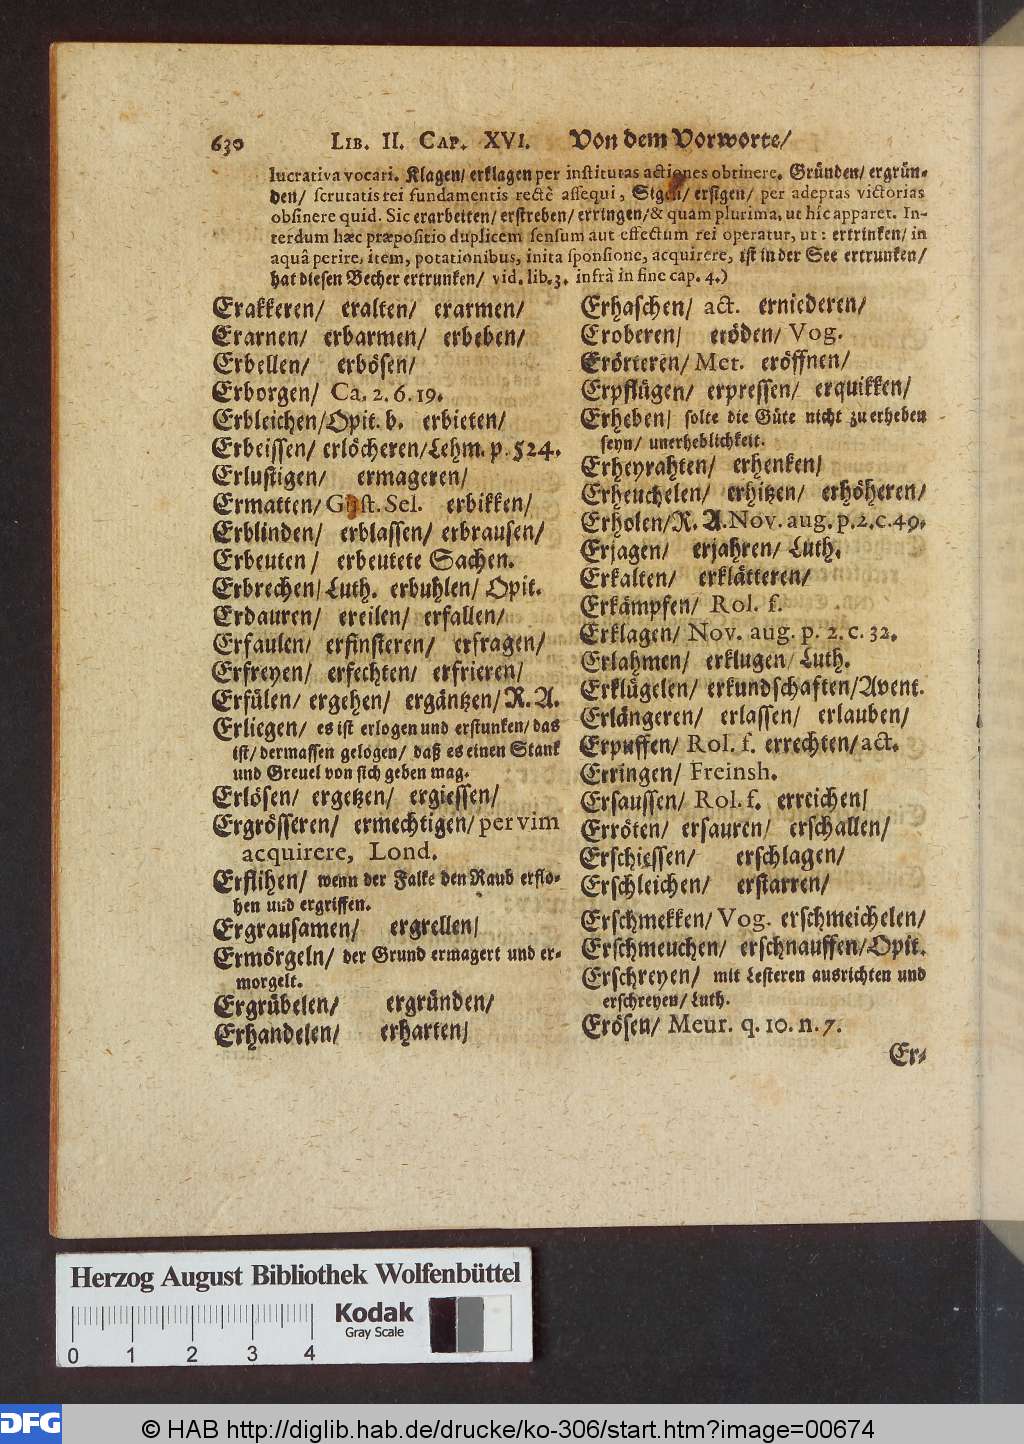 630 LIB. II. CAP. XVI. Von dem Vorworte/
lucrativa vocari. Klagen/ erklagen per institutas actiones obtinere. Gründen/ ergrün-
den/ scrutatis rei fundamentis rectè assequi, Sigen/ ersigen/ per adeptas victorias
obsinere quid. Sic erarbeiten/ erstreben/ erringen/ & quam plurima, ut hîc apparet. In-
terdum hæc præpositio duplicem sensum aut effectum rei operatur, ut: ertrinken/ in
aquâ perire, item, potationibus, inita sponsione, acquirere, ist in der See ertrunken/
hat diesen Becher ertrunken/ vid. lib. 3. infrà in fine cap. 4.)
Erakkeren/ eralten/ erarmen/
Erarnen/ erbarmen/ erbeben/
Erbellen/ erbösen/
Erborgen/ Ca. 2. 6. 19.
Erbleichen/ Opit. b. erbieten/
Erbeissen/ erlöcheren/ Lehm. p. 524.
Erlustigen/ ermageren/
Ermatten/ Gust. Sel. erbikken/
Erblinden/ erblassen/ erbrausen/
Erbeuten/ erbeutete Sachen.
Erbrechen/ Luth. erbuhlen/ Opit.
Erdauren/ ereilen/ erfallen/
Erfaulen/ erfinsteren/ erfragen/
Erfreyen/ erfechten/ erfrieren/
Erfülen/ ergehen/ ergäntzen/ R. A.
Erliegen/ es ist erlogen und erstunken/ das
ist/ dermassen gelogen/ daß es einen Stank
und Greuel von sich geben mag.
Erlösen/ ergetzen/ ergiessen/
Ergrösseren/ ermechtigen/ per vim
acquirere, Lond.
Erflihen/ wenn der Falke den Raub erflo-
hen und ergriffen.
Ergrausamen/ ergrellen/
Ermörgeln/ der Grund ermagert und er-
morgelt.
Ergrübelen/ ergründen/
Erhandelen/ erharten/
Erhaschen/ act. erniederen/
Eroberen/ eröden/ Vog.
Erörteren/ Met. eröffnen/
Erpflügen/ erpressen/ erquikken/
Erheben/ solte die Güte nicht zu erheben
seyn/ unerheblichkeit.
Erheyrahten/ erhenken/
Erheuchelen/ erhitzen/ erhöheren/
Erholen/ R. A. Nov. aug. p. 2. c. 49.
Erjagen/ erjahren/ Luth.
Erkalten/ erklätteren/
Erkämpfen/ Rol. f.
Erklagen/ Nov. aug. p. 2. c. 32.
Erlahmen/ erklugen/ Luth.
Erklügelen/ erkundschaften/ Avent.
Erlängeren/ erlassen/ erlauben/
Erpuffen/ Rol. f. errechten/ act.
Erringen/ Freinsh.
Ersaussen/ Rol. f. erreichen/
Erröten/ ersauren/ erschallen/
Erschiessen/ erschlagen/
Erschleichen/ erstarren/
Erschmekken/ Vog. erschmeichelen/
Erschmeuchen/ erschnauffen/ Opit.
Erschreyen/ mit Lesteren ausrichten und
erschreyen/ Luth.
Erösen/ Meur. q. 10. n. 7.
Er-
Herzog August Bibliothek Wolfenbüttel
Kodak
Gray Scale
0 1 2 3 4
DFG © HAB http://diglib.hab.de/drucke/ko-306/start.htm?image=00674